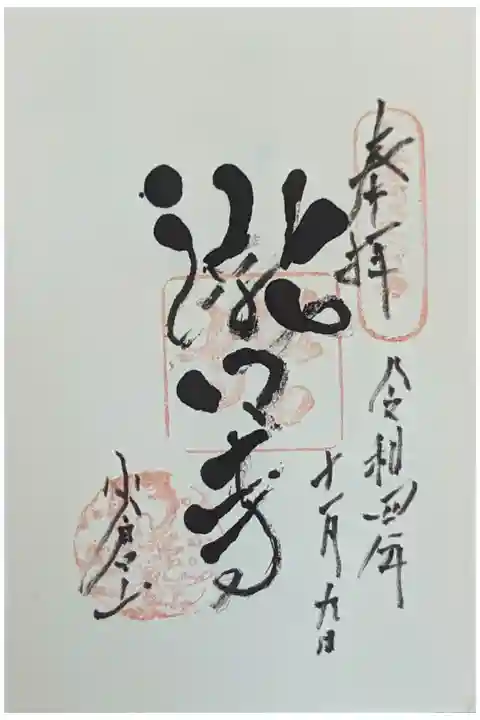 奉拝
令和四年
十一月九日
瀧口寺
小倉山